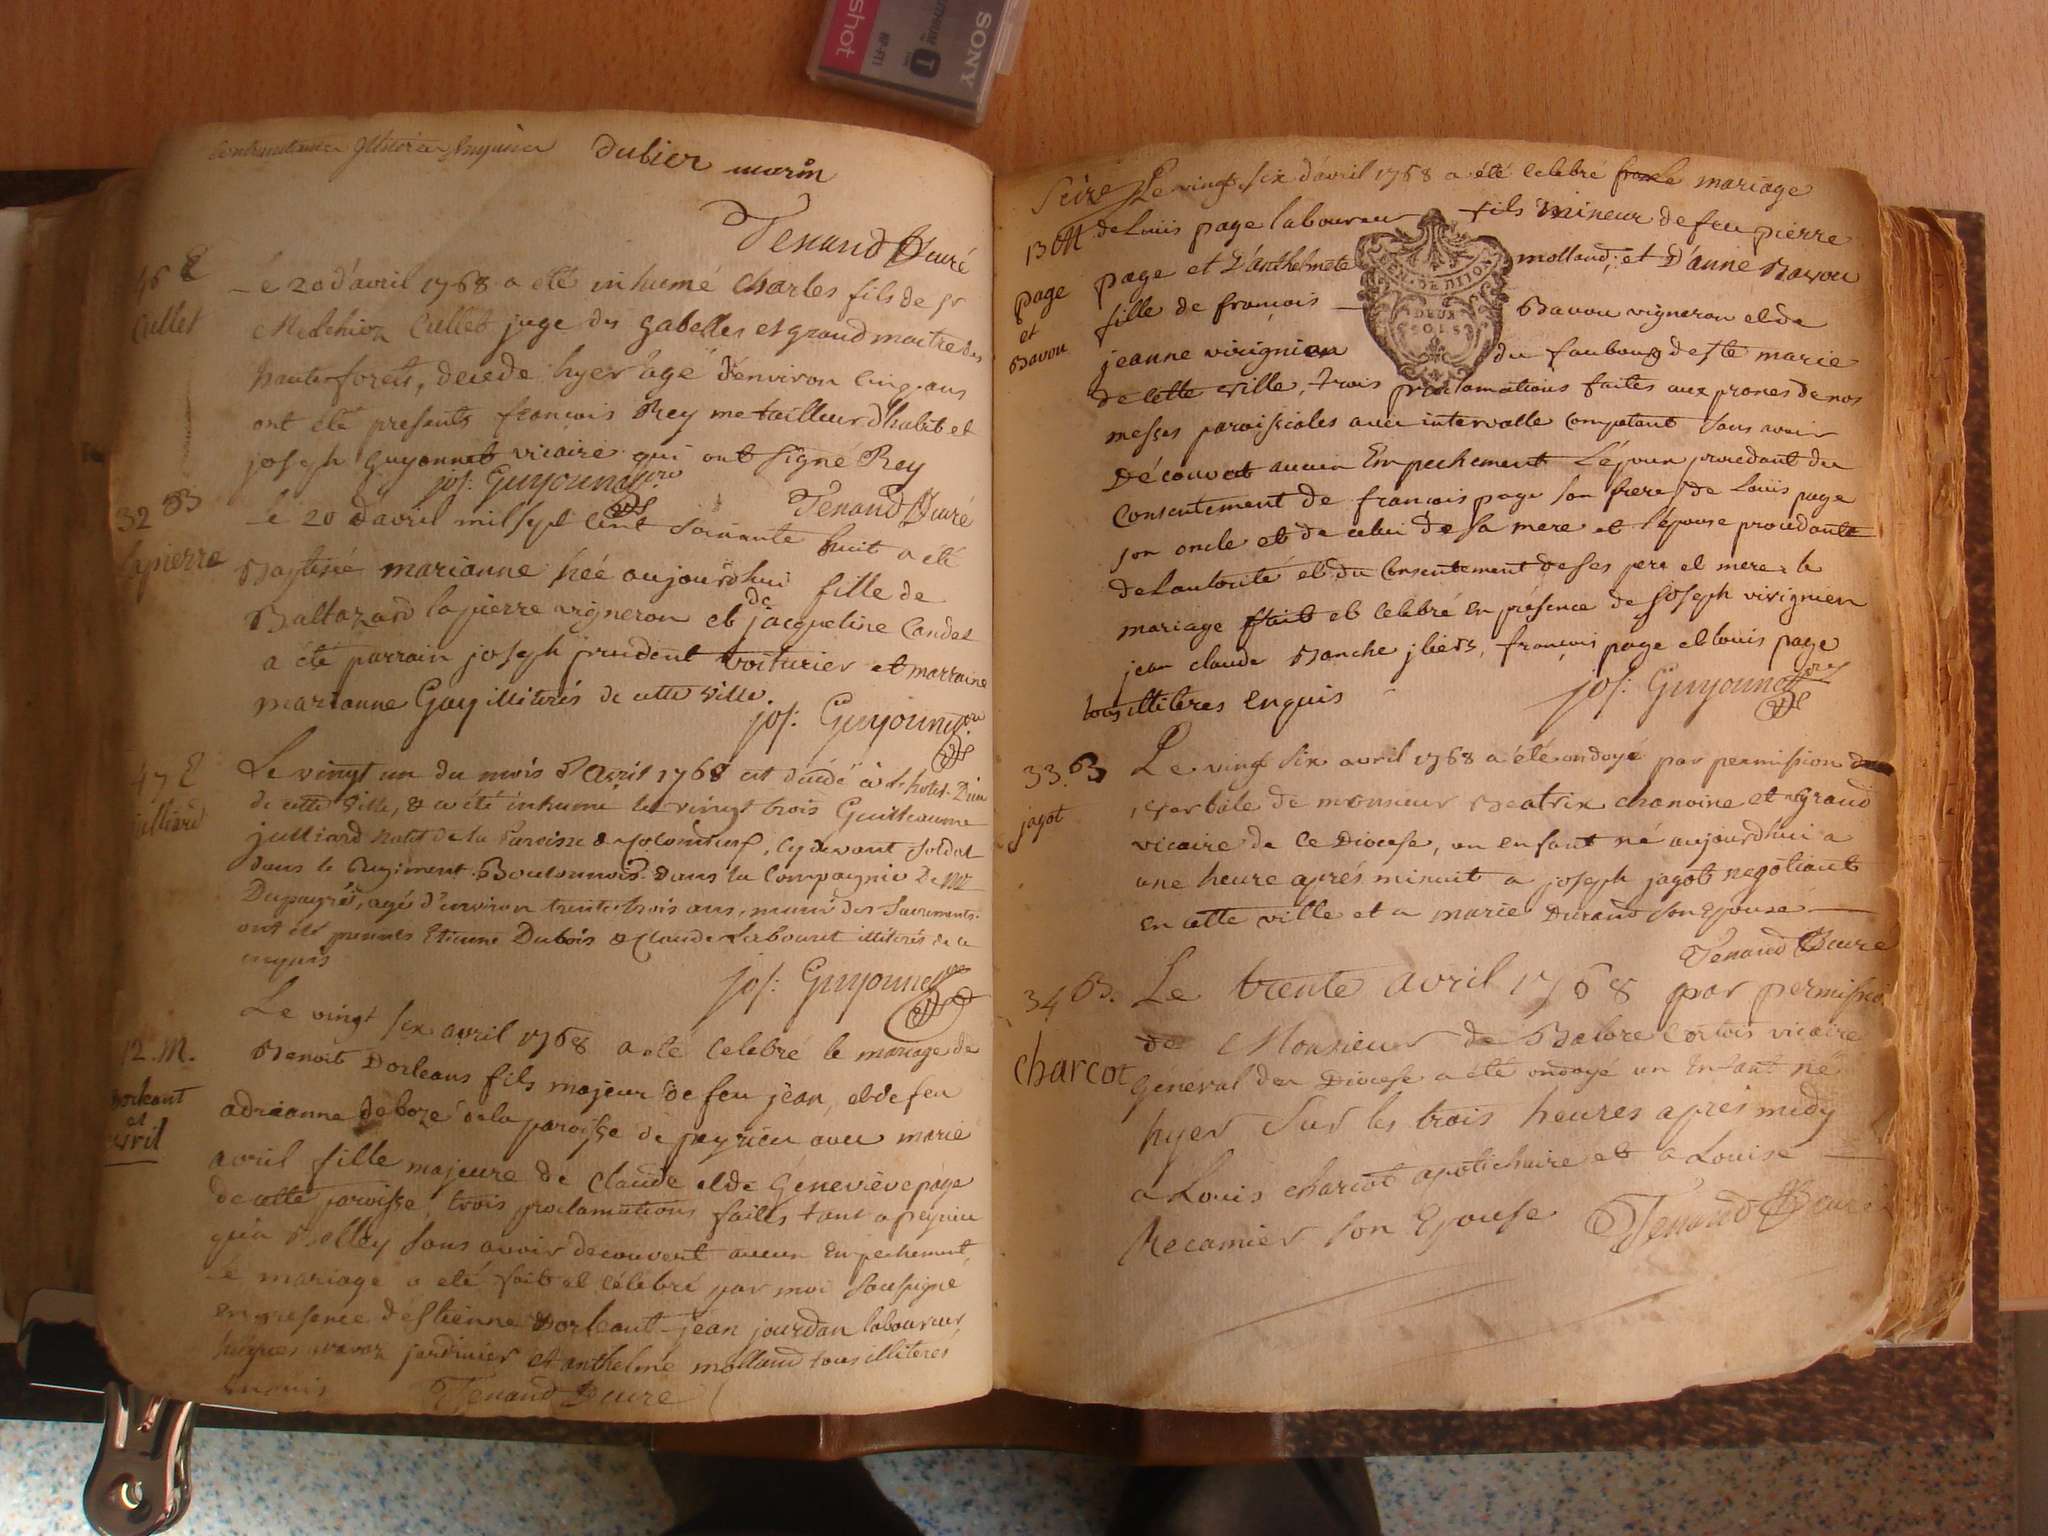 SONY
shot
T
Dubier marin
Tenand Curé
46 E
Cullet
Le 20 d'avril 1768 a été inhumé Charles fils de sr
Melchior Cullet juge des gabelles et grand maitre des
hauts forets, decede hyer agé d'environ cinq ans
ont été presents françois Rey me tailleur d'habit et
joseph guyonnet vicaire qui ont signé Rey
jos: Guyonnet vre
Tenand Curé
32 B
Lapierre
Le 20 d'avril mil sept cent soixante huit a été
Baptisée marianne née aujourdhui fille de
Baltazard lapierre vigneron et de jacqueline Candet
a été parrain joseph prudent voiturier et marraine
marianne Gay illiterés de cette ville.
jos: Guyonnet vre
47 E
julliard
Le vingt un du mois d'avril 1768 est décédé à l'hotel-Dieu
de cette ville, & a été inhumé le vingt trois Guillaume
julliard natif de la Paroisse de Colomieu, cy devant soldat
dans le Regiment Boulonnois dans la Compagnie De Mr
Dupayré, agé d'environ trente trois ans, muni des Sacrements.
ont été presents Etienne Dubois & Claude Labouret illiterés de ce
enquis
jos: Guyonnet vre
12. M.
Dorleant
et
avril
Le vingt six avril 1768 a été celebré le mariage de
Benoit Dorleans fils majeur de feu jean, et de feu
adrianne Deboze de la paroisse de peyrieu avec marie
avril fille majeure de Claude et de Géneviève page
de cette paroisse, trois proclamations faites tant a peyrieu
qu'a Belley sans avoir decouvert aucun Empechement,
le mariage a eté fait et célébré par moi soussigné
en presence d'Estienne Dorleant jean jourdan laboureur,
jardinier et anthelme molland tous illiteres
enquis Tenand Curé
Seize
Le vingt six d'avril 1768 a été celebré le mariage
13 M
de Louis page laboureur fils mineur de feu pierre
page
et
Bavou
page et D'anthelmete molland; et D'anne Bavou
fille de françois Bavou vigneron et de
GEN. DE DIJON
DEUX
SOLS
jeanne virignien du faubourg de ste marie
de cette ville, trois proclamations faites aux prones de nos
messes paroissiales avec intervalle competant sans avoir
Découvert aucun Empechement L'époux procedant du
Consentement de francois page son frere, de Louis page
son oncle et de celui de sa mere et l'épouse procedante
de L'autorité et du Consentement de ses pere et mere. le
mariage fait et celebré en présence de joseph virignien
jean claude Manche jliers, françois page et louis page
tous illiteres enquis
jos: Guyonnet vre
33. B
jagot
Le vingt six avril 1768 a été ondoyé par permission
verbale de monsieur Beatrix chanoine et Grand
vicaire de ce Diocese, un enfant né aujourdhui a
une heure aprés minuit a joseph jagot negotiant
en cette ville et a marie Durand son Epouse
Tenand Curé
34 B.
charcot
Le trente avril 1768 par permission
de Monsieur de Belore Cortois vicaire
Général du Diocese a été ondoyé un Enfant né
hyer sur les trois heures aprés midy
a Louis charcot apotichaire et a Louise
Recamier son Epouse Tenand Curé